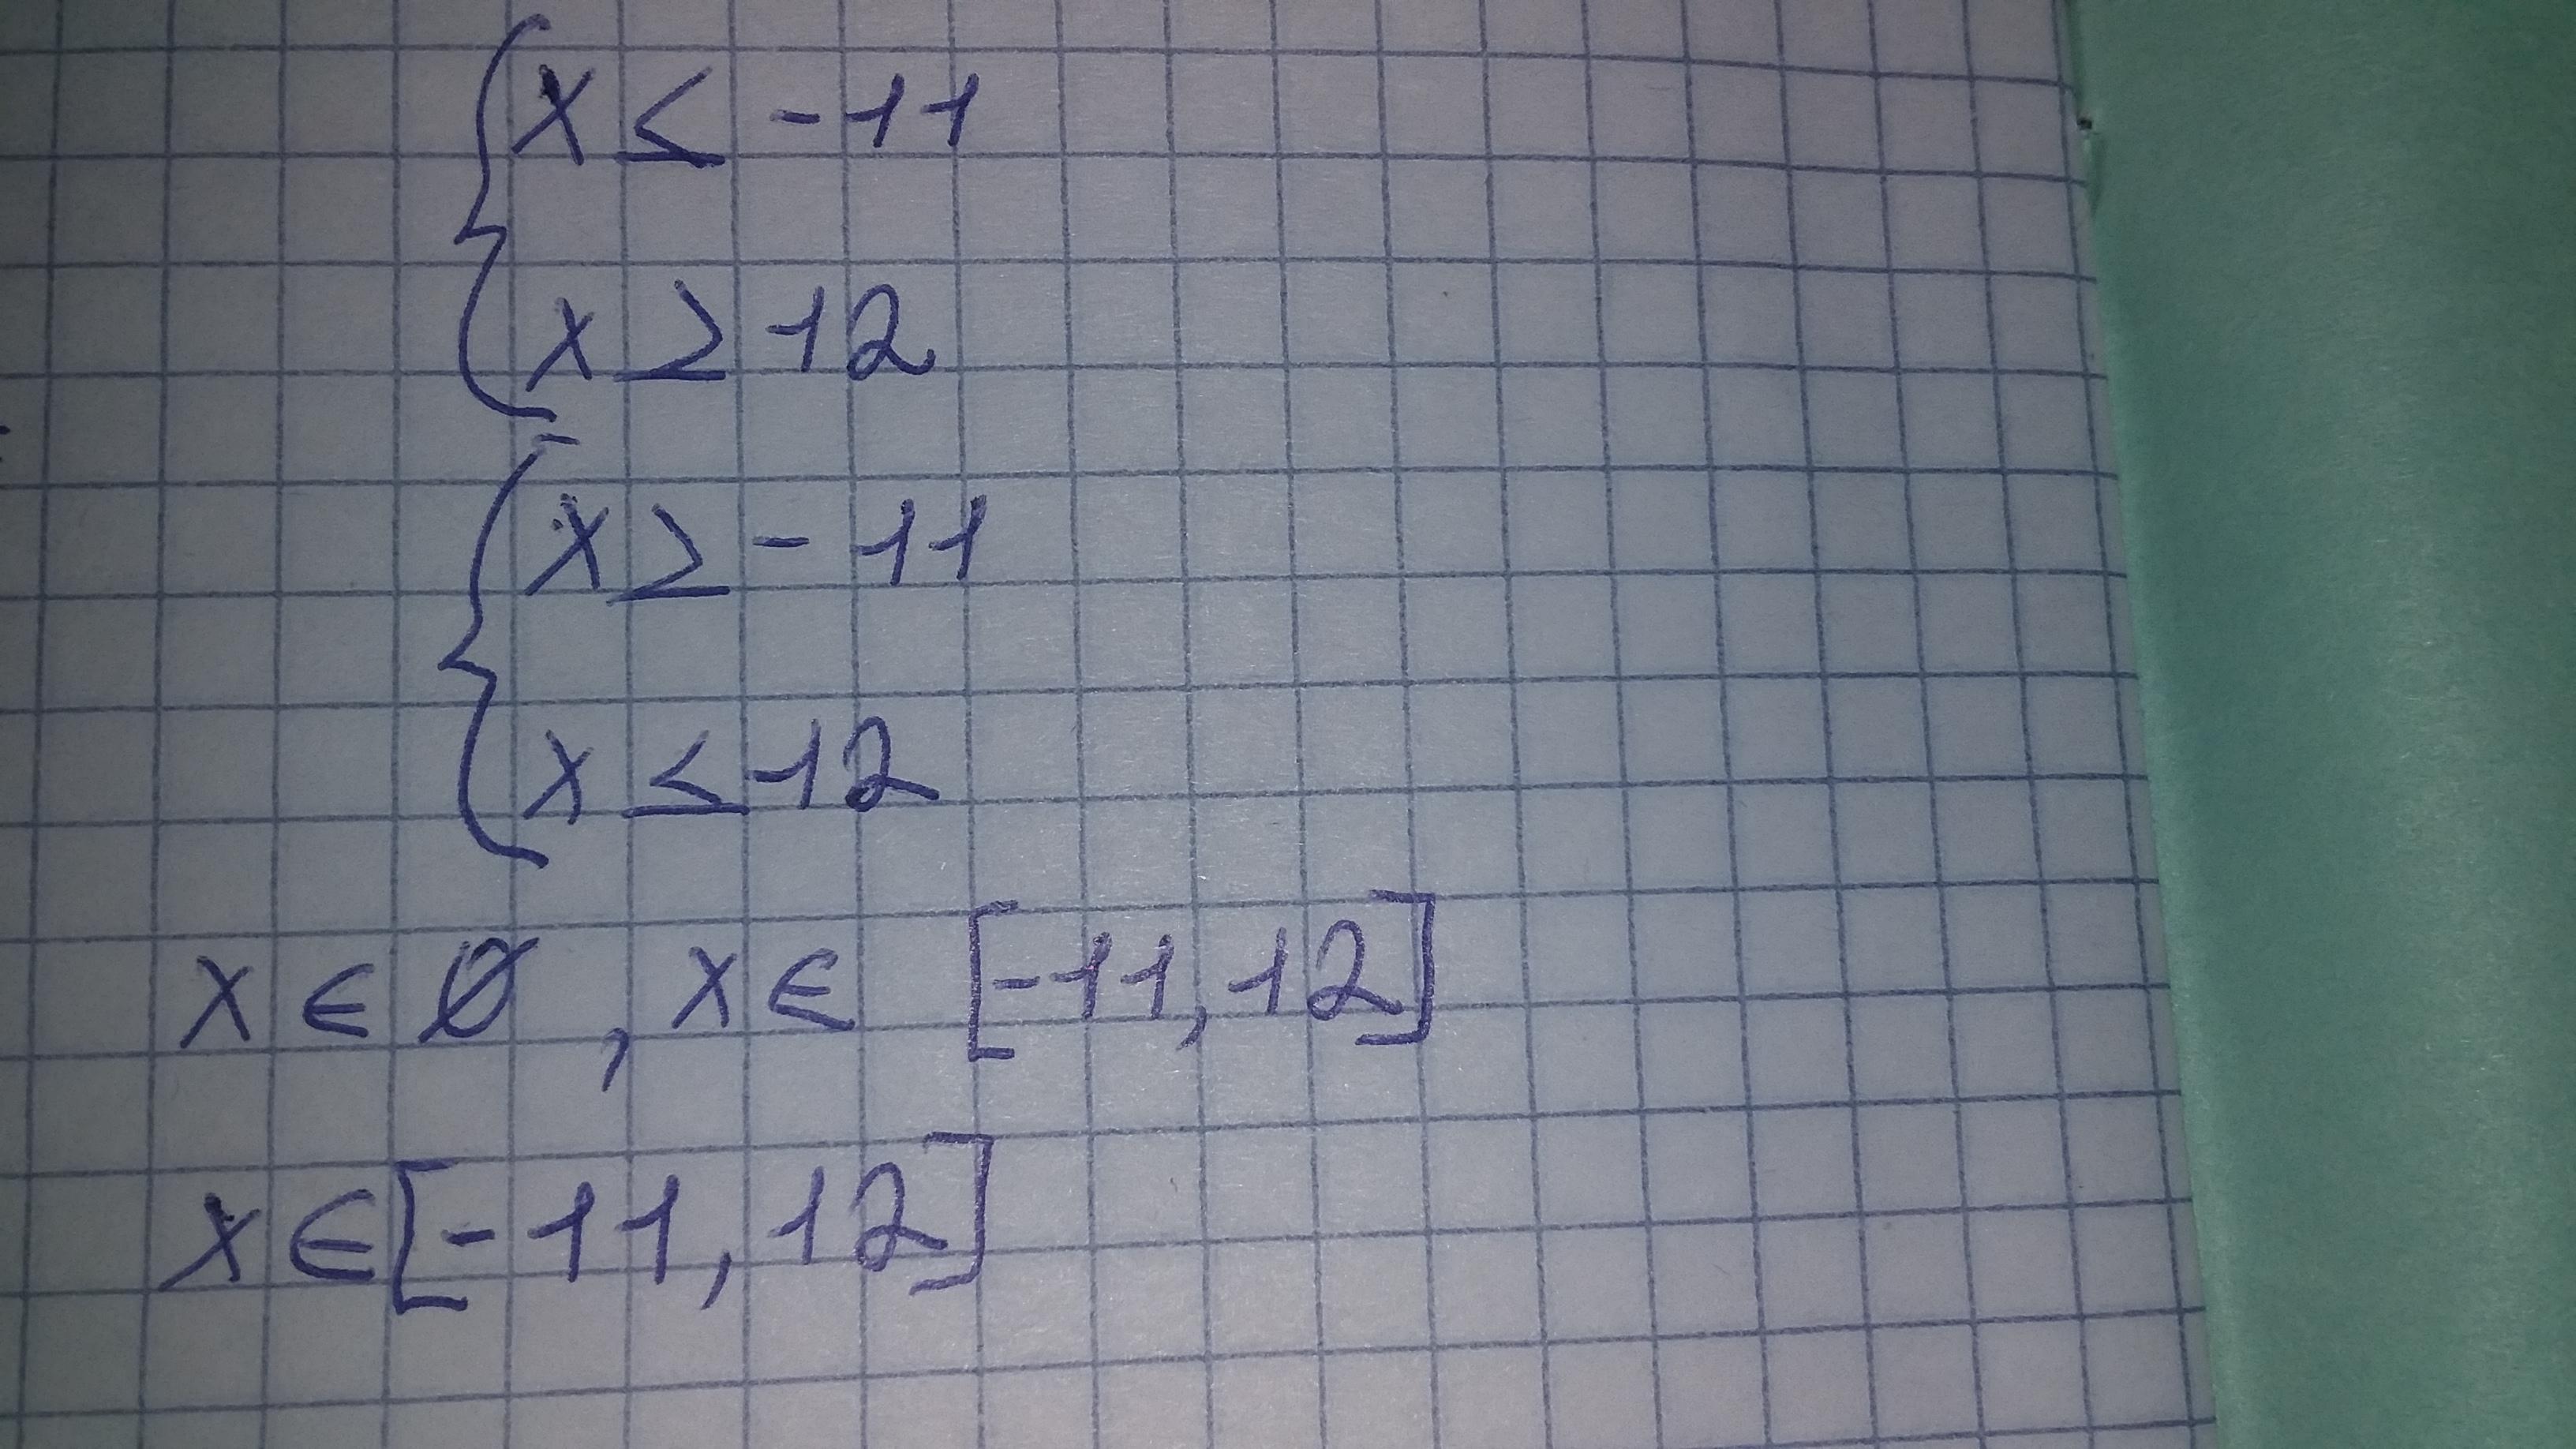 { x ≤ -11
x ≥ 12
{ x ≥ -11
x ≤ 12
x ∈ ∅ , x ∈ [-11, 12]
x ∈ [-11, 12]